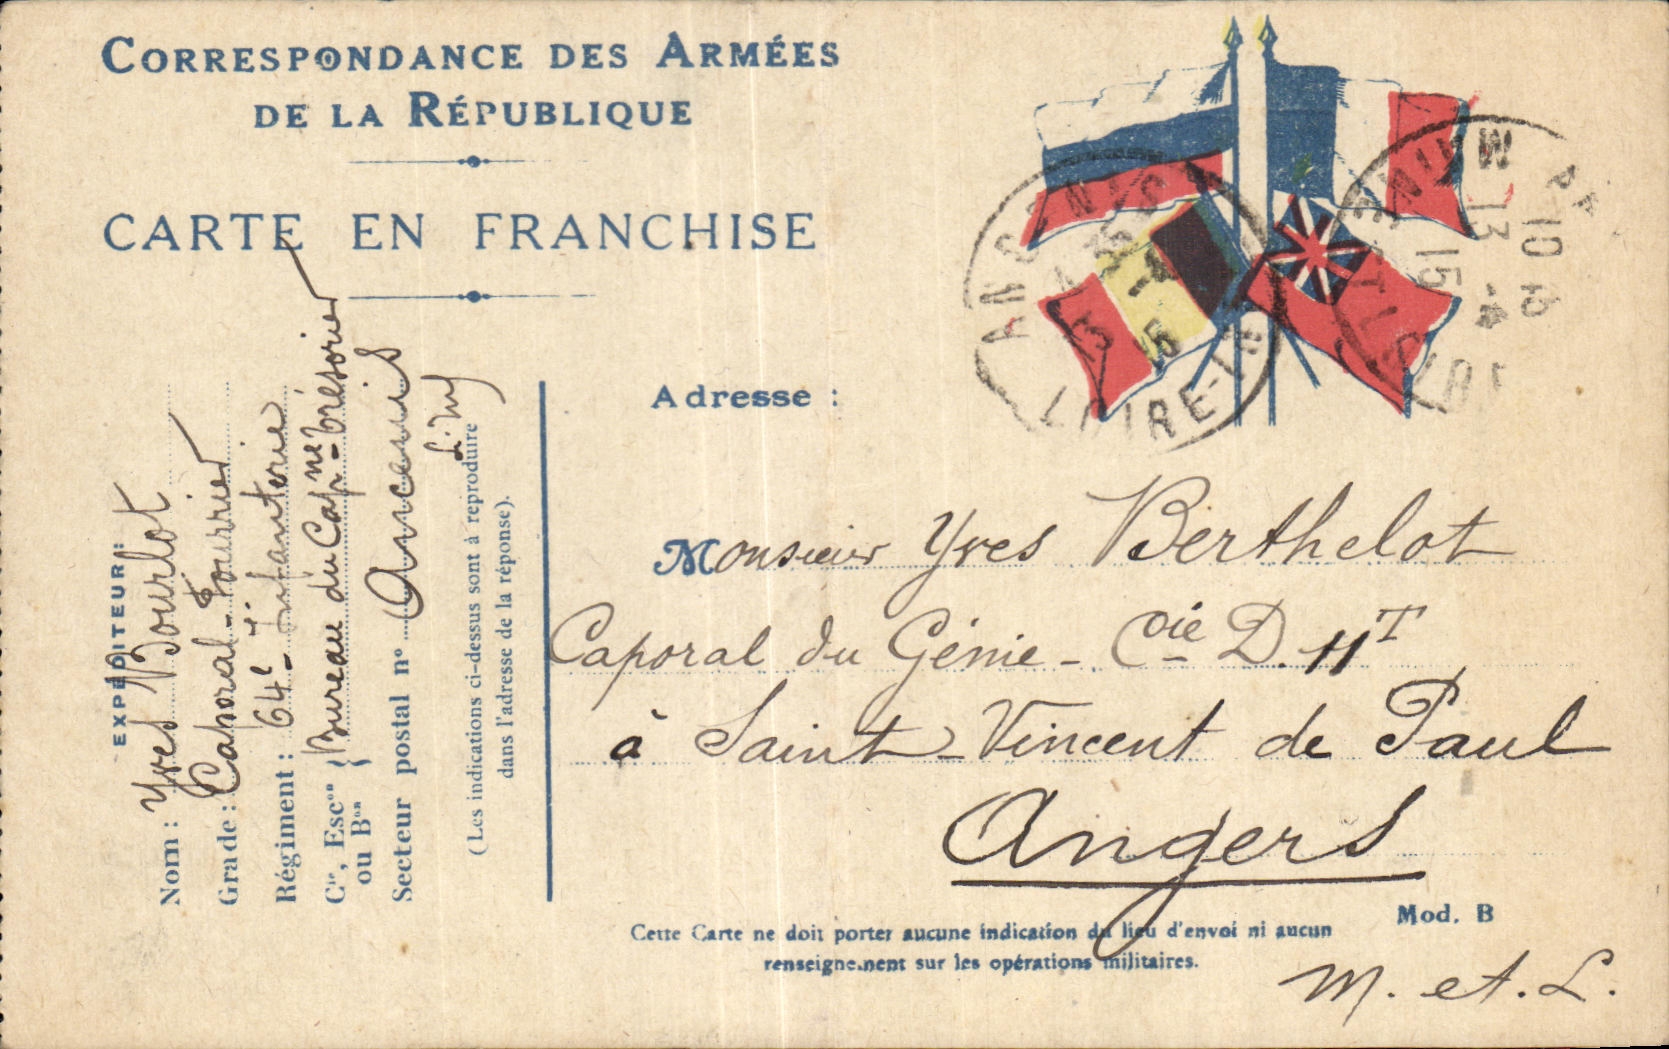 CORRESPONDANCE DES ARMÉES
DE LA RÉPUBLIQUE
CARTE EN FRANCHISE
EXPÉDITEUR:
Nom : Yves Bourlot
Grade : Caporal-Fourrier
Régiment : 64e Infanterie
Cie, Escon ou Bon { Bureau du Capne trésorier
Secteur postal no Ancenis
(Les indications ci-dessus sont à reproduire
dans l'adresse de la réponse).
Adresse :
ANCENIS
13 -4 15
LOIRE-INF
MAINE ET LOIRE
13 -4 15
Monsieur Yves Berthelot
Caporal du Génie - Cie D. 11T
à Saint-Vincent de Paul
Angers
M. et. L.
Cette Carte ne doit porter aucune indication du lieu d'envoi ni aucun
renseignement sur les opérations militaires.
Mod. B